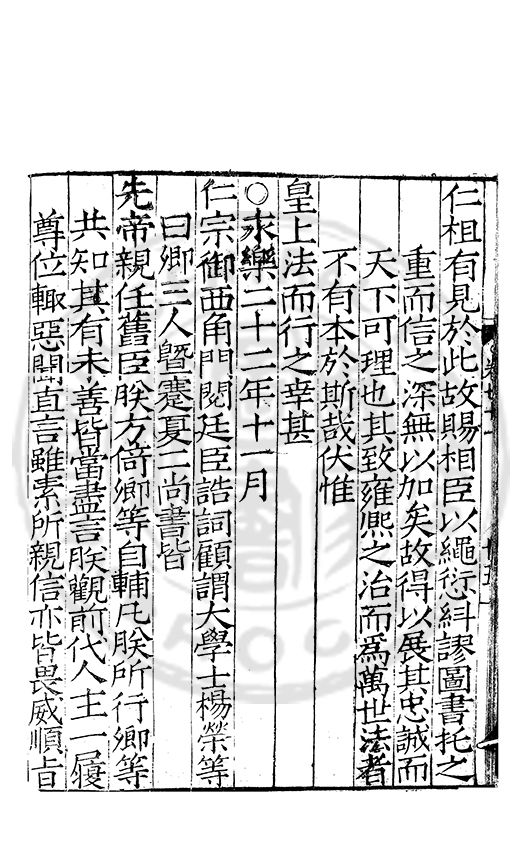 仁祖有見於此故賜相臣以繩愆糾謬圖書托之
重而信之深無以加矣故得以展其忠誠而
天下可理也其致雍熈之治而爲萬世法者
不有本於斯哉伏惟
皇上法而行之幸甚
○永樂二十二年十一月
仁宗御西角門閱廷臣誥詞顧謂大學士楊榮等
曰卿三人曁蹇夏二尚書皆
先帝親任舊臣朕方倚卿等自輔凡朕所行卿等
共知其有未善皆當盡言朕觀前代人主一履
尊位輙惡聞直言雖素所親信亦皆畏威順㫖